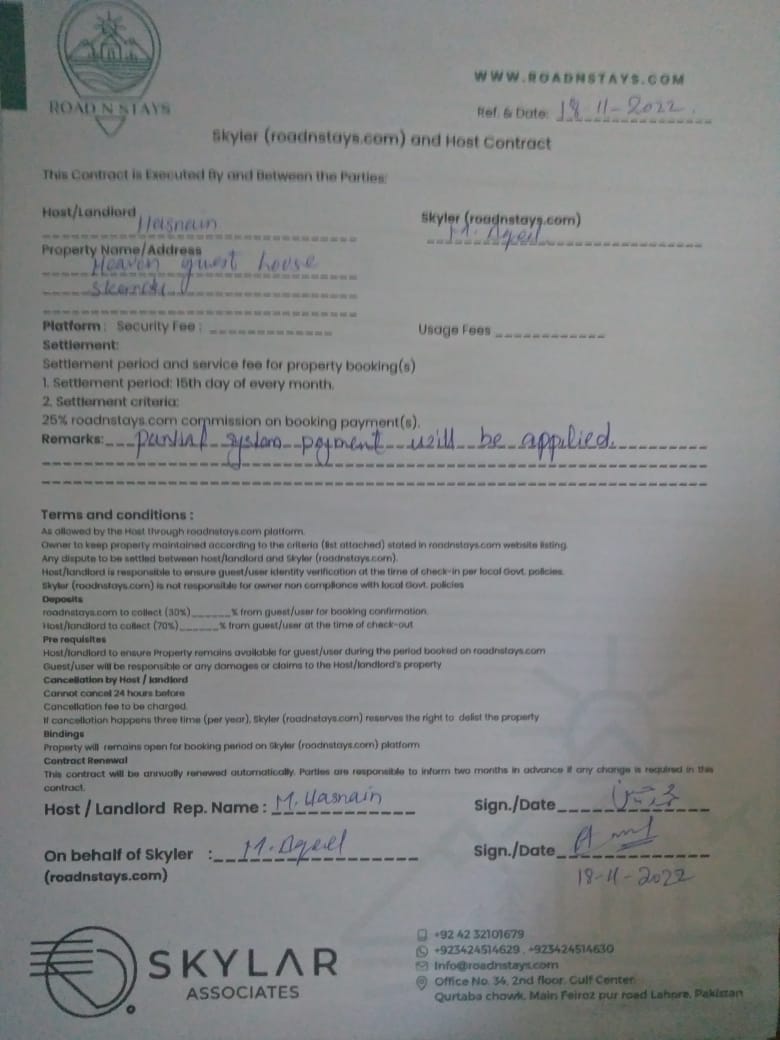 ROAD N STAYS
WWW.ROADNSTAYS.COM
Ref. & Date: 18-11-2022.
Skyler (roadnstays.com) and Host Contract
This Contract is Executed By and Between the Parties:
Host/Landlord
Hasnain
Skyler (roadnstays.com)
M. Aqeil
Property Name/Address
Heaven guest house
Platform : Security Fee :
Usage Fees
Settlement:
Settlement period and service fee for property booking(s)
1. Settlement period: 15th day of every month.
2. Settlement criteria:
25% roadnstays.com commission on booking payment(s).
Remarks: system payment will be applied.
Terms and conditions :
As allowed by the Host through roadnstays.com platform.
Owner to keep property maintained according to the criteria (list attached) stated in roadnstays.com website listing.
Any dispute to be settled between host/landlord and Skyler (roadnstays.com).
Host/landlord is responsible to ensure guest/user identity verification at the time of check-in per local Govt. policies.
Skyler (roadnstays.com) is not responsible for owner non compliance with local Govt. policies
Deposits
roadnstays.com to collect (30%)______% from guest/user for booking confirmation.
Host/landlord to collect (70%)______% from guest/user at the time of check-out
Pre requisites
Host/landlord to ensure Property remains available for guest/user during the period booked on roadnstays.com
Guest/user will be responsible or any damages or claims to the Host/landlord's property
Cancellation by Host / landlord
Cannot cancel 24 hours before
Cancellation fee to be charged.
If cancellation happens three time (per year), Skyler (roadnstays.com) reserves the right to delist the property
Bindings
Property will remains open for booking period on Skyler (roadnstays.com) platform
Contract Renewal
This contract will be annually renewed automatically. Parties are responsible to inform two months in advance if any change is required in this
contract.
Host / Landlord Rep. Name : M. Hasnain
Sign./Date
On behalf of Skyler : M. Aqeel
Sign./Date
(roadnstays.com)
18-11-2022
SKYLAR
ASSOCIATES
+92 42 32101679
+923424514629 , +923424514630
Info@roadnstays.com
Office No. 34, 2nd floor, Gulf Center
Qurtaba chowk, Main Feiroz pur road Lahore, Pakistan